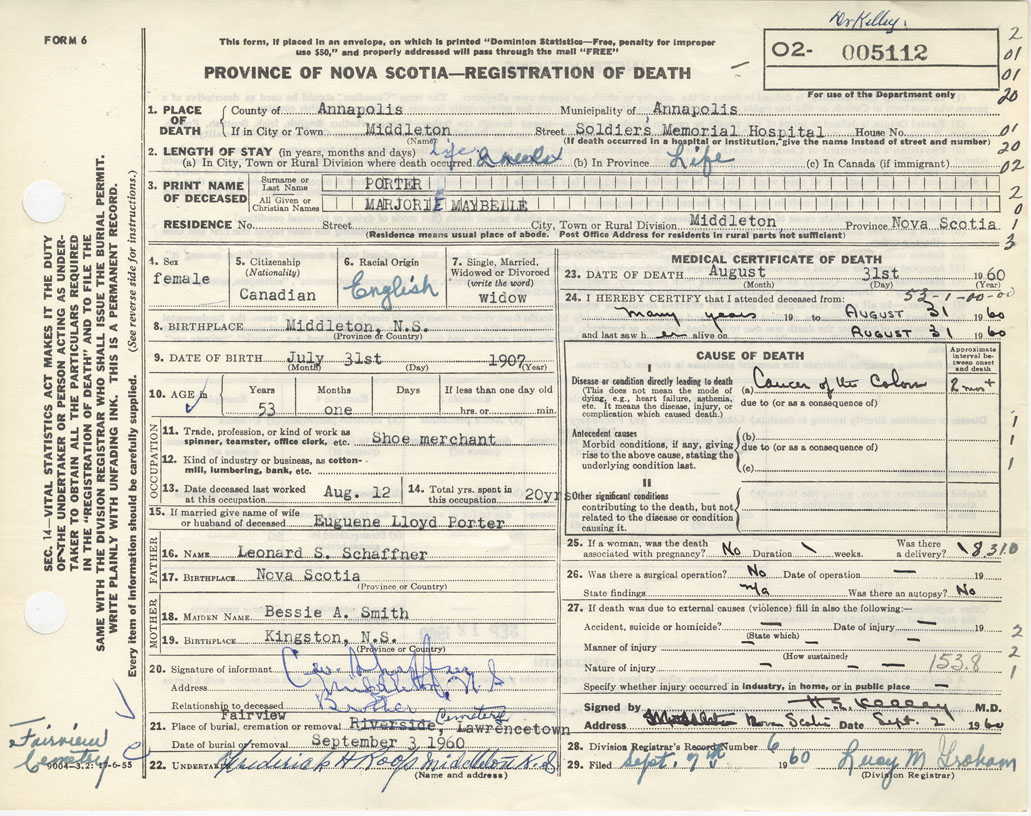 Dr Kelley.
FORM 6
This form, if placed in an envelope, on which is printed "Dominion Statistics—Free, penalty for improper
use $50," and properly addressed will pass through the mail "FREE"
O2- 005112
For use of the Department only
PROVINCE OF NOVA SCOTIA—REGISTRATION OF DEATH
1. PLACE OF DEATH
County of Annapolis Municipality of Annapolis
If in City or Town Middleton Street Soldiers Memorial Hospital House No.
(Name) (If death occurred in a hospital or institution, give the name instead of street and number)
2. LENGTH OF STAY (in years, months and days)
(a) In City, Town or Rural Division where death occurred Life (b) In Province Life (c) In Canada (if immigrant)
3. PRINT NAME OF DECEASED
Surname or Last Name PORTER
All Given or Christian Names MARJORIE MAYBELLE
RESIDENCE No. Street City, Town or Rural Division Middleton Province Nova Scotia
(Residence means usual place of abode. Post Office Address for residents in rural parts not sufficient)
4. Sex
female
5. Citizenship
(Nationality)
Canadian
6. Racial Origin
English
7. Single, Married, Widowed or Divorced
(write the word)
widow
8. BIRTHPLACE Middleton, N.S.
(Province or Country)
9. DATE OF BIRTH July 31st 1907
(Month) (Day) (Year)
10. AGE in
Years Months Days If less than one day old
53 one hrs. or min.
OCCUPATION
11. Trade, profession, or kind of work as
spinner, teamster, office clerk, etc. Shoe merchant
12. Kind of industry or business, as cotton-
mill, lumbering, bank, etc.
13. Date deceased last worked
at this occupation Aug. 12
14. Total yrs. spent in
this occupation 20yrs
15. If married give name of wife
or husband of deceased Euguene Lloyd Porter
FATHER
16. NAME Leonard S. Schaffner
17. BIRTHPLACE Nova Scotia
(Province or Country)
MOTHER
18. MAIDEN NAME: Bessie A. Smith
19. BIRTHPLACE Kingston, N.S.
(Province or Country)
20. Signature of informant
Address Middleton, N S
Relationship to deceased Brother
21. Place of burial, cremation or removal Fairview Riverside, Cemetery Lawrencetown
Date of burial or removal September 3, 1960
22. UNDERTAKER Frederick H Roop Middleton N.S
(Name and address)
Fairview
Cemetery
9004-3.2: 17-6-55
SEC. 14—VITAL STATISTICS ACT MAKES IT THE DUTY
OF THE UNDERTAKER OR PERSON ACTING AS UNDER-
TAKER TO OBTAIN ALL THE PARTICULARS REQUIRED
IN THE "REGISTRATION OF DEATH" AND TO FILE THE
SAME WITH THE DIVISION REGISTRAR WHO SHALL ISSUE THE BURIAL PERMIT.
WRITE PLAINLY WITH UNFADING INK. THIS IS A PERMANENT RECORD.
Every item of information should be carefully supplied. (See reverse side for instructions.)
MEDICAL CERTIFICATE OF DEATH
23. DATE OF DEATH August 31st 1960
(Month) (Day) (Year)
24. I HEREBY CERTIFY that I attended deceased from: 53-1-00-00
many years 19 to AUGUST 31 1960
and last saw her alive on AUGUST 31 1960
CAUSE OF DEATH
Approximate interval between onset and death
I
Disease or condition directly leading to death
(This does not mean the mode of
dying, e.g., heart failure, asthenia,
etc. It means the disease, injury, or
complication which caused death.)
(a) Cancer of the Colon 2 mos +
due to (or as a consequence of)
Antecedent causes
Morbid conditions, if any, giving
rise to the above cause, stating the
underlying condition last.
(b)
due to (or as a consequence of)
(c)
II
Other significant conditions
contributing to the death, but not
related to the disease or condition
causing it.
25. If a woman, was the death
associated with pregnancy? No Duration \ weeks. Was there
a delivery? \
8310
26. Was there a surgical operation? No Date of operation — 19
State findings n/a Was there an autopsy? No
27. If death was due to external causes (violence) fill in also the following:—
Accident, suicide or homicide? — Date of injury — 19
(State which)
Manner of injury — —
(How sustained)
Nature of injury — — — 153.8
Specify whether injury occurred in industry, in home, or in public place —
Signed by H E Kelley M.D.
Address Middleton Nova Scotia Date Sept. 2 1960
28. Division Registrar's Record Number 6
29. Filed Sept. 7th 1960 Lucy M. Graham
(Division Registrar)
2
01
01
20
01
20
02
2
0
1
3
1
1
1
2
2
1